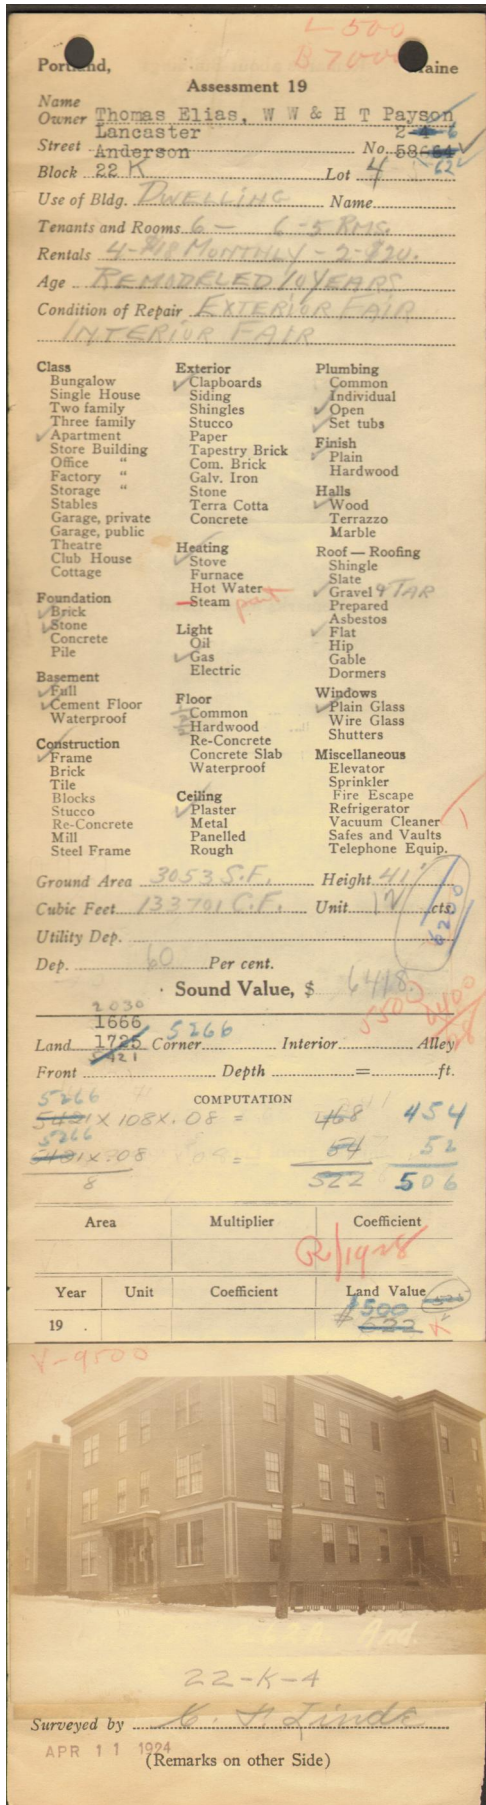 L-500
B 7000
Portland, Maine
Assessment 19
Name
Owner Thomas Elias, W W & H T Payson
Lancaster 2-4-6
Street Anderson No. 58-
62
Block 22 K Lot 4
Use of Bldg. DWELLING Name
Tenants and Rooms 6 - 6-5 RMS.
Rentals 4-$18 MONTHLY - 2-$20.
Age REMODELED 10 YEARS
Condition of Repair EXTERIOR FAIR
INTERIOR FAIR
Class
Bungalow
Single House
Two family
Three family
Apartment
Store Building
Office "
Factory "
Storage "
Stables
Garage, private
Garage, public
Theatre
Club House
Cottage
Foundation
Brick
Stone
Concrete
Pile
Basement
Full
Cement Floor
Waterproof
Construction
Frame
Brick
Tile
Blocks
Stucco
Re-Concrete
Mill
Steel Frame
Exterior
Clapboards
Siding
Shingles
Stucco
Paper
Tapestry Brick
Com. Brick
Galv. Iron
Stone
Terra Cotta
Concrete
Heating
Stove
Furnace
Hot Water
Steam part
Light
Oil
Gas
Electric
Floor
Common
Hardwood
Re-Concrete
Concrete Slab
Waterproof
Ceiling
Plaster
Metal
Panelled
Rough
Plumbing
Common
Individual
Open
Set tubs
Finish
Plain
Hardwood
Halls
Wood
Terrazzo
Marble
Roof — Roofing
Shingle
Slate
Gravel & TAR
Prepared
Asbestos
Flat
Hip
Gable
Dormers
Windows
Plain Glass
Wire Glass
Shutters
Miscellaneous
Elevator
Sprinkler
Fire Escape
Refrigerator
Vacuum Cleaner
Safes and Vaults
Telephone Equip.
Ground Area 3053 S.F. Height 41'
Cubic Feet 133701 C.F. Unit 12 cts.
6200
Utility Dep.
Dep. 60 Per cent.
Sound Value, $ 6418.
5500 6400
28
2030
1666
Land 1725 5266 Corner Interior Alley
5421
Front Depth = ft.
COMPUTATION
5266
5421 X 108 X .08 = 468 454
5266
5421 X .08 = 54 52
8 522 506
Area Multiplier Coefficient
R/1928
Year Unit Coefficient Land Value
19 . $500
522
V-9500
22-K-4
Surveyed by
APR 11 1924
(Remarks on other Side)